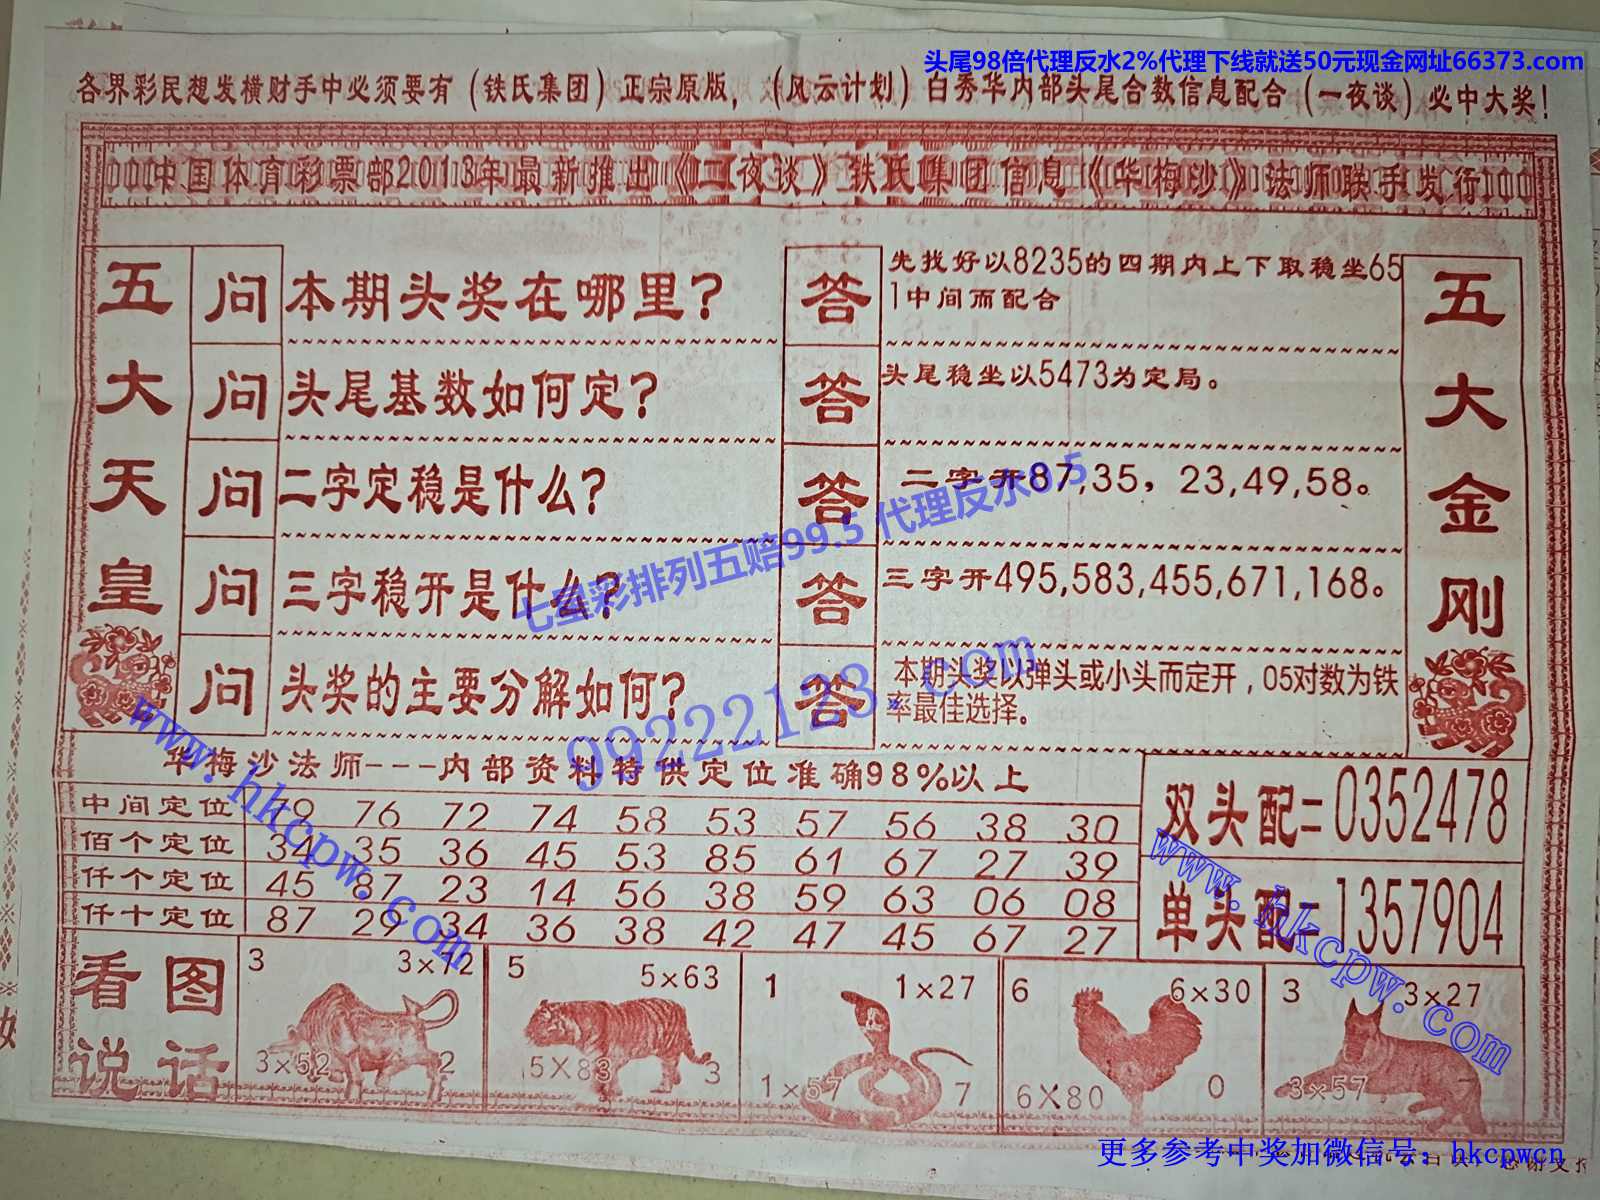 头尾98倍代理反水2%代理下线就送50元现金网址66373.com
各界彩民想发横财手中必须要有（铁氏集团）正宗原版，（风云计划）白秀华内部头尾合数信息配合（一夜谈）必中大奖！
中国体育彩票部2013年最新推出《二夜谈》铁氏集团信息《华梅沙》法师联手发行
五大天皇
问 本期头奖在哪里？
答 先找好以8235的四期内上下取稳坐65
1中间而配合
问 头尾基数如何定？
答 头尾稳坐以5473为定局。
问 二字定稳是什么？
答 二字开87,35，23,49,58。
问 三字稳开是什么？
答 三字开495,583,455,671,168。
问 头奖的主要分解如何？
答 本期头奖以弹头或小头而定开，05对数为铁
率最佳选择。
五大金刚
七星彩排列五赔99.5 代理反水8.5
99222123.com
www.hkcpw.com
华梅沙法师---内部资料特供定位准确98%以上
中间定位 79 76 72 74 58 53 57 56 38 30
佰个定位 34 35 36 45 53 85 61 67 27 39
仟个定位 45 87 23 14 56 38 59 63 06 08
仟十定位 87 29 34 36 38 42 47 45 67 27
双头配=0352478
单头配=1357904
www.hkcpw.com
看图
说话
3 3×12
3×52 2
5 5×63
5×83 3
1 1×27
1×57 7
6 6×30
6×80 0
3 3×27
3×57
更多参考中奖加微信号：hkcpwcn